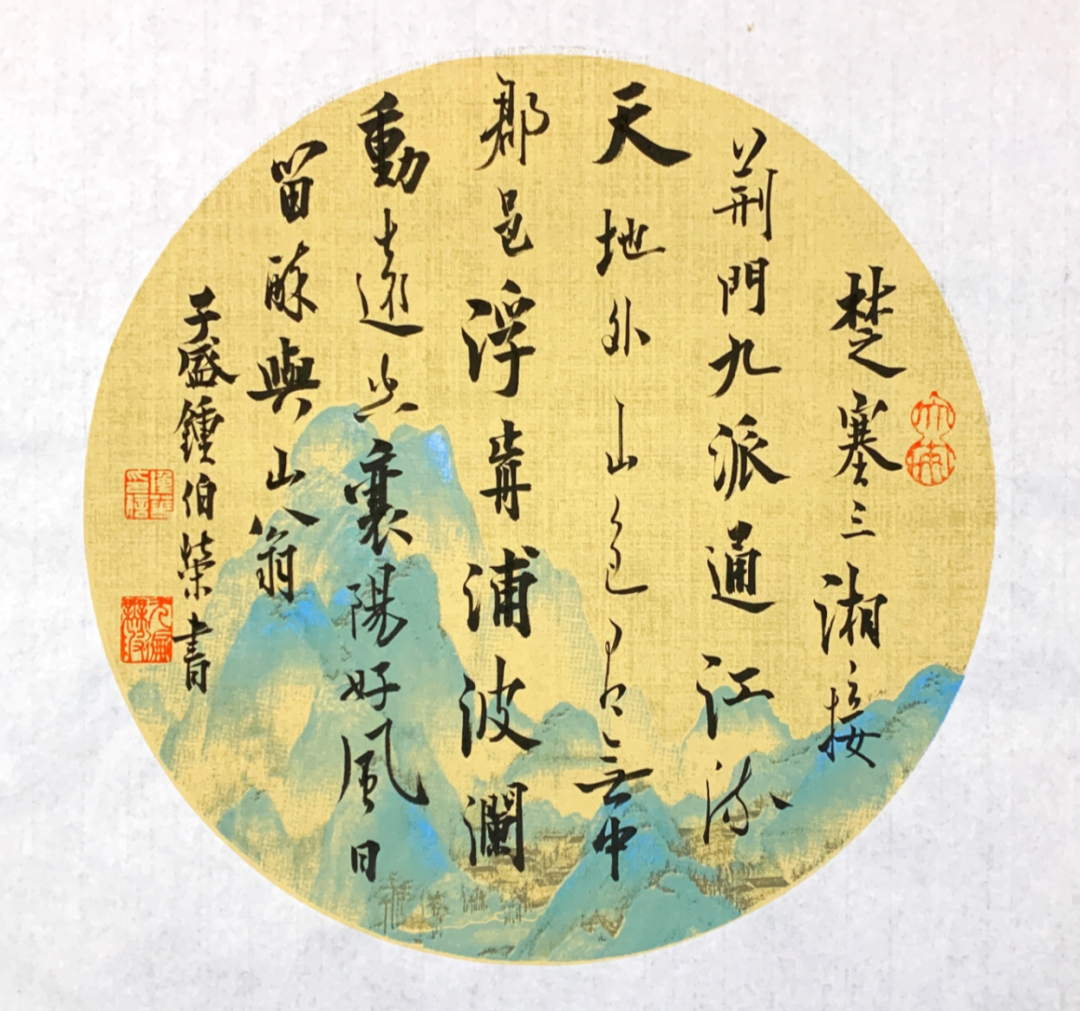 楚塞三湘接
荊門九派通江流
天地外山色有無中
郡邑浮前浦波瀾
動遠空襄陽好風日
留醉與山翁
子盛鍾伯榮書